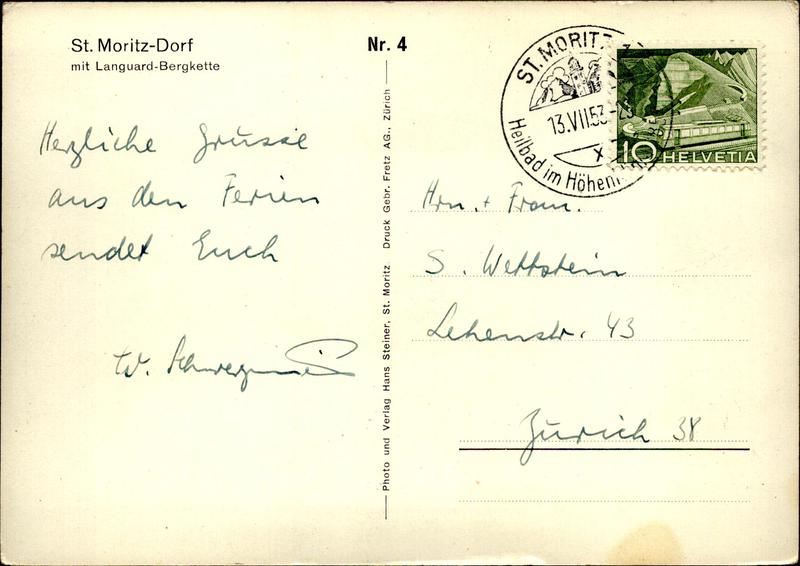 St. Moritz-Dorf
mit Languard-Bergkette
Nr. 4
Herzliche Grüsse
aus den Ferien
sendet Euch
W.
Photo und Verlag Hans Steiner, St. Moritz Druck Gebr. Fretz AG., Zürich
ST. MORITZ
13.VII.53
X
Heilbad im Höhen
10 HELVETIA
Hrn. + Frau.
S. Wettstein
Lehenstr. 43
Zürich 38